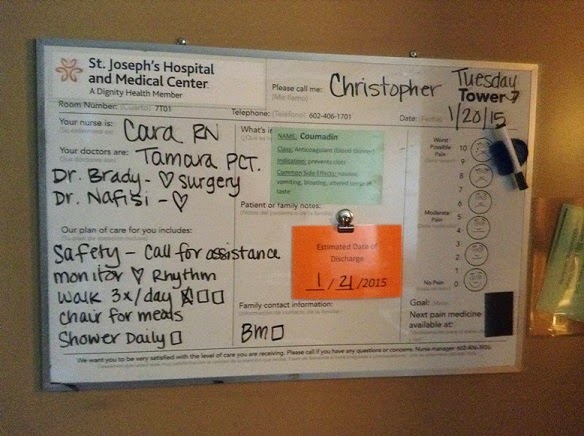 St. Joseph's Hospital
and Medical Center
A Dignity Health Member
Please call me: Christopher
Tuesday
Tower 7
Room Number: (Cuarto) 7T01
Telephone: (Teléfono) 602-406-1701
Date: (Fecha) 1/20/15
Your nurse is: Cara RN
Tamara PCT.
Your doctors are:
Dr. Brady - ♡ Surgery
Dr. Nafisi - ♡
What's
NAME: Coumadin
Class: Anticoagulant (blood thinner)
Indication: prevents clots
Common Side Effects: nausea,
vomiting, bloating, altered sense of
taste
Patient or family notes:
Estimated Date of
Discharge
1/21/2015
Our plan of care for you includes:
Safety - Call for assistance
monitor ♡ Rhythm
walk 3x/day ☒☐☐
chair for meals
Shower Daily ☐
Family contact information:
Bm☐
Worst
Possible
Pain
10
9
8
7
6
Moderate
Pain
5
4
3
2
1
No Pain
0
Goal: (Meta)
Next pain medicine
available at:
We want you to be very satisfied with the level of care you are receiving. Please call if you have any questions or concerns. Nurse manager: